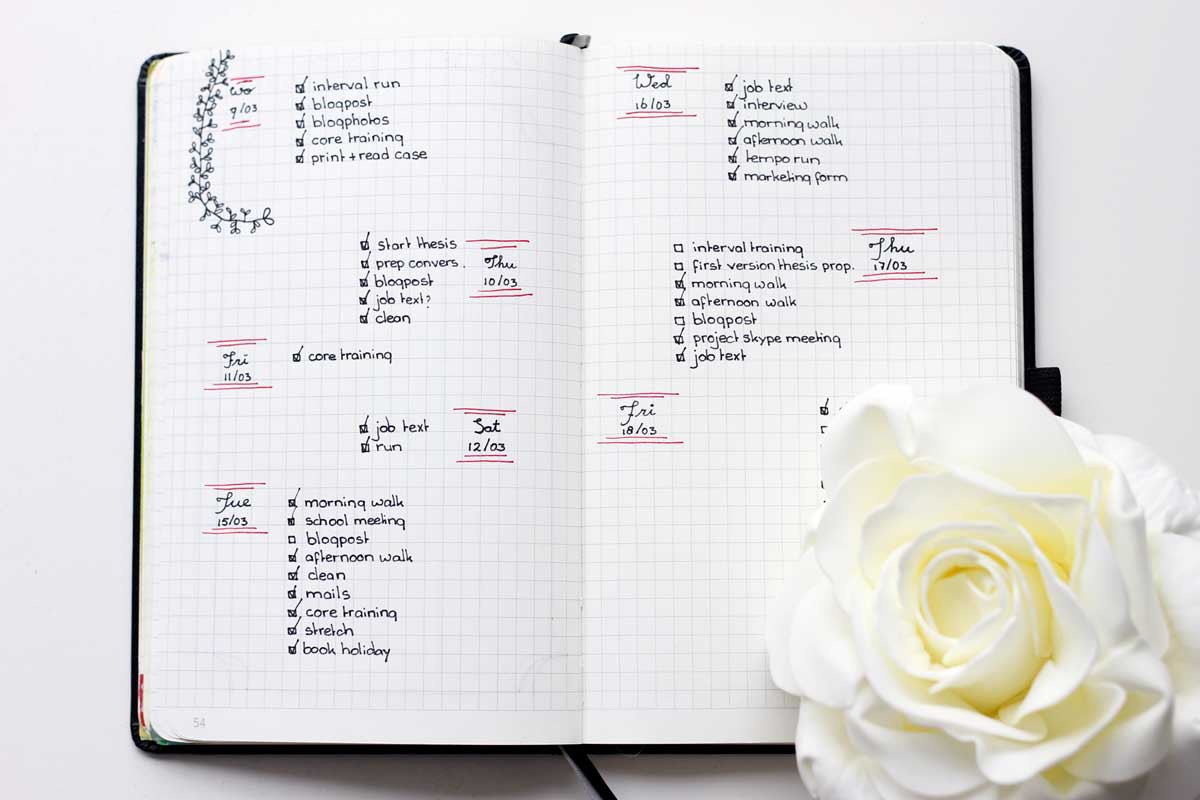 Wo
9/03
interval run
blogpost
blogphotos
core training
print + read case
start thesis
prep convers.
blogpost
job text?
clean
Thu
10/03
Fri
11/03
core training
job text
run
Sat
12/03
Tue
15/03
morning walk
school meeting
blogpost
afternoon walk
clean
mails
core training
stretch
book holiday
54
Wed
16/03
job text
interview
morning walk
afternoon walk
tempo run
marketing form
interval training
first version thesis prop.
morning walk
afternoon walk
blogpost
project skype meeting
job text
Thu
17/03
Fri
18/03